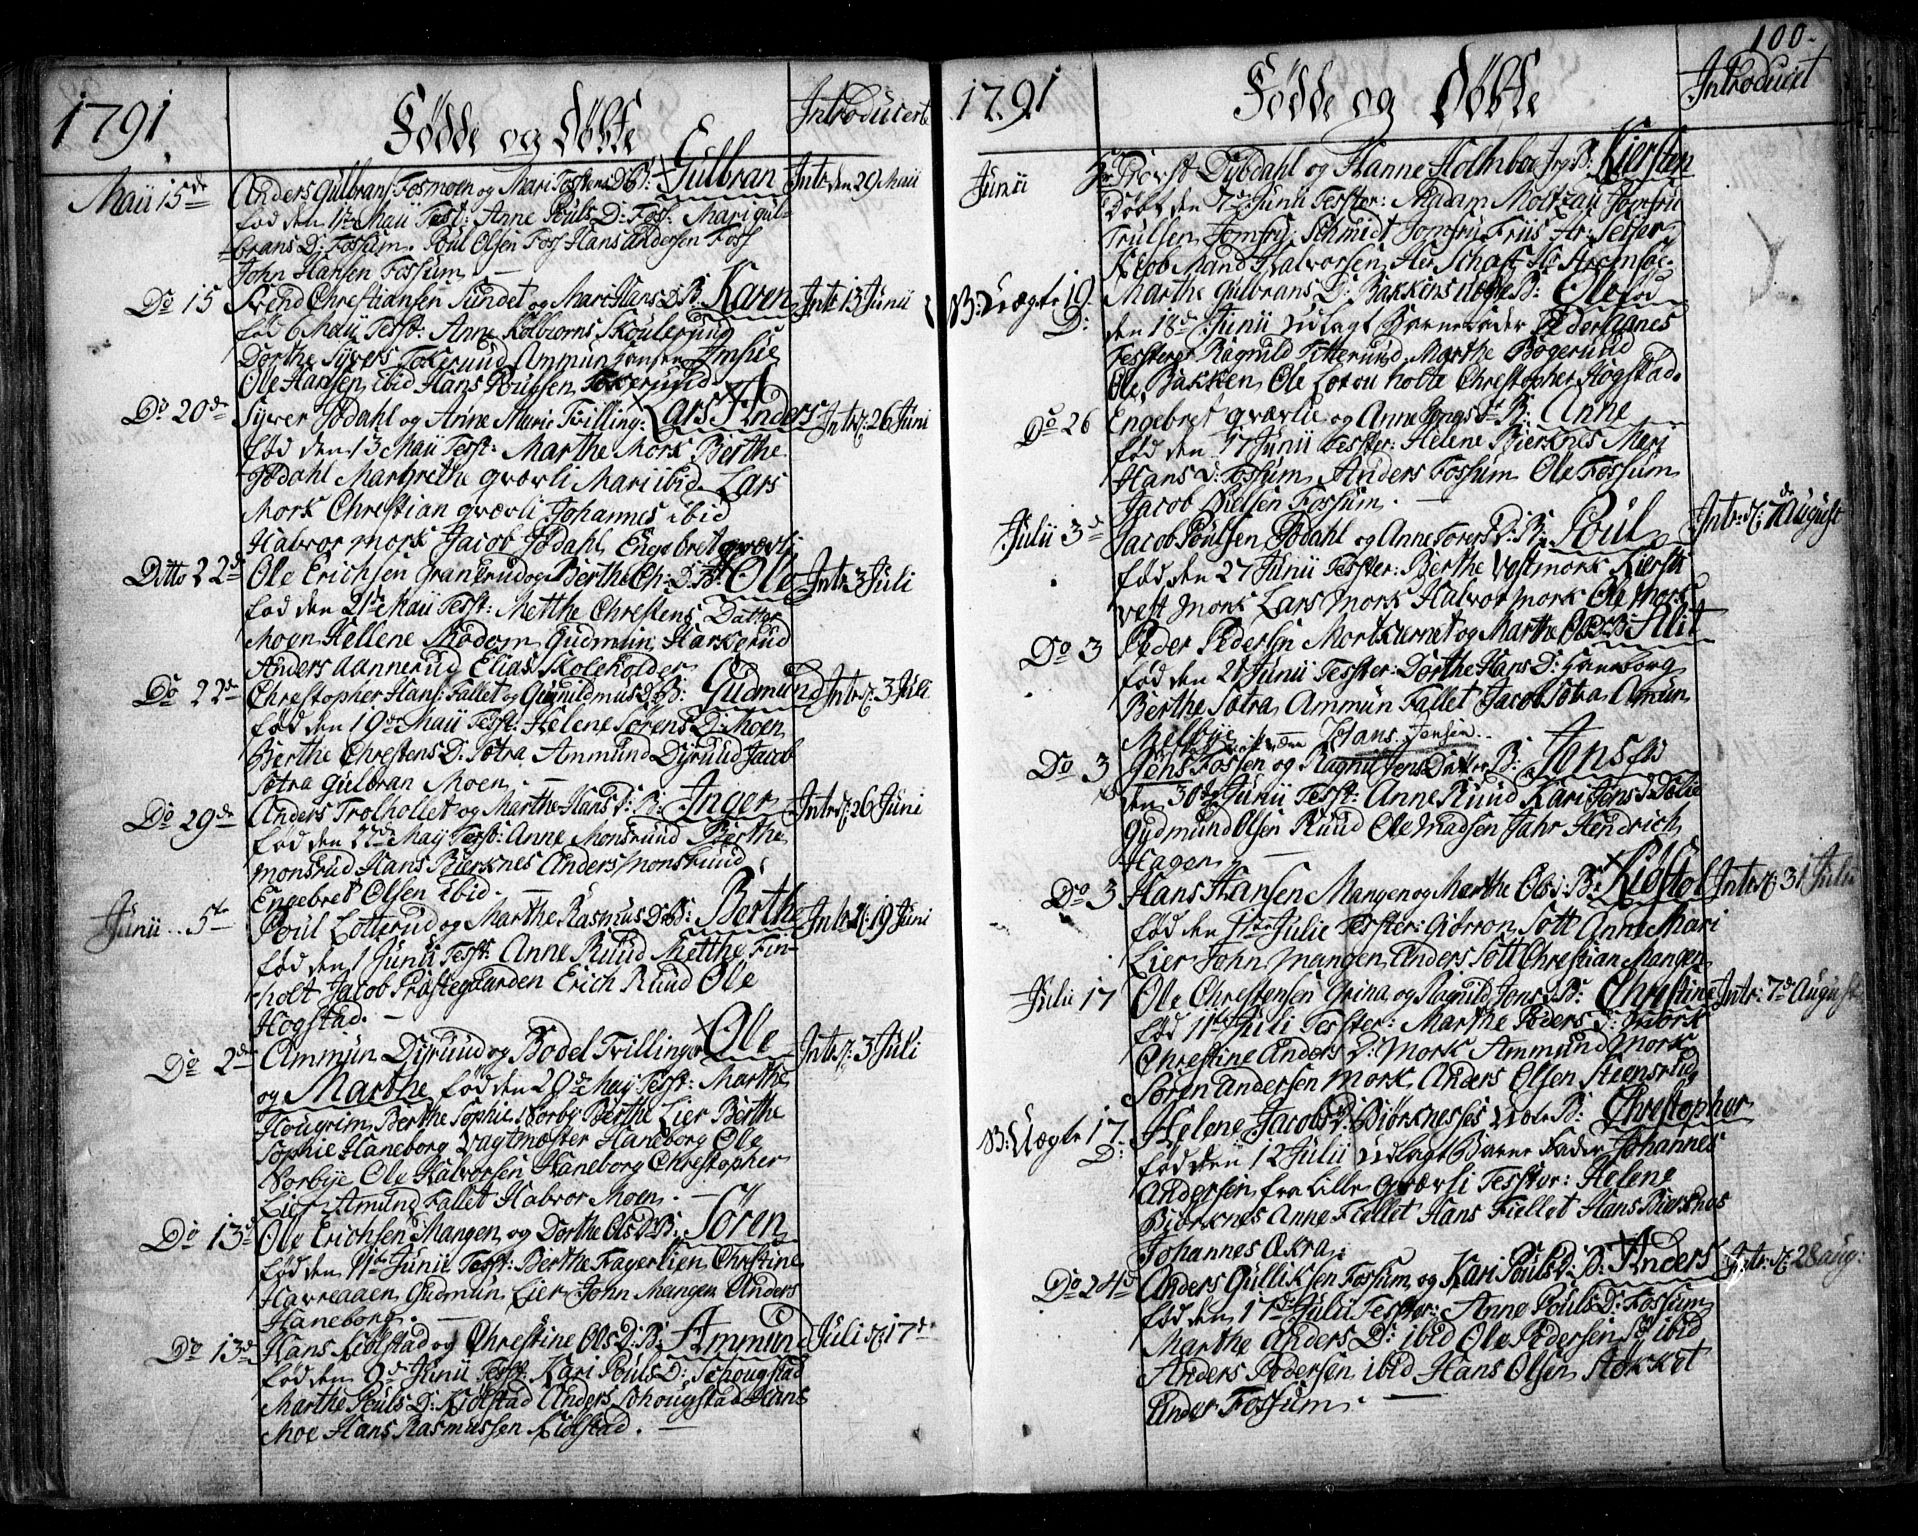 1791
Fødde og døbte
Introducerte
Maii 15de
Anders Gulbrans: Fosmoen og Mari Tostens D B: Gulbran
Intr: den 29 Maii
fød den 1ste Maii Test: Anne Pouls D: Foss: Mari Gul-
brans D: Fossum. Poul Olsen Foss Hans Andersen Foss
John Hansen Fossum. —
Do 15
Svend Christiansen Sundet og Mari Hans D B: Karen
Intr: 13 Junii
fød 6 Maii Test: Anne Kolbiorns Skoulerund
Dorthe Syvers Tokerund Ammun Hansen
Ole Hansen ibid Hans Poulsen Tokerund
Do 20de
Syver Jødahl og Anne Marie Tvilling: Lars & Anders
Intr: 26 Juni
fød den 13 Maii Test: Marthe Mork Berthe
Jødahl Margrethe Grævli Mari ibid. Lars
Mork Christian Grævli Johannes ibid
Halvor Mork Jacob Jødahl Engebret Grævli
Ditto 22de
Ole Erichsen Granerud og Berthe Ch: D: B: Ole
Intr: 3 Juli
fød den 21de Maii Test: Metthe Christens Datter
Moen Hellene Gudmun Harkerud
Anders Aannerud Elias Skoleholder
Do 22de
Christopher Hans: Fallet og Gunild B: Gudmund
Intr: 3 Juli
fød den 19de Maii Test: Helene Sørens D: Moen
Berthe Christens D: Sotra Ammund Dyrud Jacob
Sotra Gulbran Moen. —
Do 29de
Anders Trolhollet og Marthe Hans D: B: Inger
Intr: 26 Juni
fød den 22de May Test: Anne Monsrund Berthe
Monsrud Hans Bierknes Anders Monsrund
Engebret Olsen ibid. —
Junii 5te
Poul Lotterud og Marthe Rasmus D B: Berthe
Intr: 19 Juni
fød den 1 Junii Test: Anne Ruud Metthe Fin-
holt Jacob Præstegaarden Erich Ruud Ole
Hogstad. —
Do 2de
Ammun Dyrud og Bodel Tvillinger Ole
Intr: 3 Juli
og Marthe fød den 29de May Test: Marthe
Hougrim Berthe Sophie Norby Berthe Lier Berthe
Sophie Haneborg Vagtmester Haneborg Ole
Norbye Ole Halvorsen Haneborg Christopher
Lier Amund Fallet Halvor Moen. —
Do 13de
Ole Erichsen Mangen og Dorthe Ols D: B: Søren
fød den 11te Junii Test: Berthe Fagerlien Christine
Harreaaen Gudmun Lier John Mangen Anders
Haneborg. —
Do 13de
Hans Kiølstad og Christine Ols D: B: Ammund
Juli 17de
fød den 9de Junii Test: Kari Pouls D: Schougstad
Marthe Pouls D: Kiølstad Anders Schougstad Hans
Moe Hans Rasmussen Kiølstad. —
100.
1791
Fødde og Døbte
Introducert
Junii
Hr Provst Dybdahl og Hanne Holmboe B: Kiersten
Døbt den 7de Junii Tester: Madam Moltzau Jomfru
Trulsen Jomfru Schmidt Jomfru Friis Hr:
Kiøbmand Halvorsen
NB: Uægte 19.
D:
Marthe Gulbrans D: Bakkens uægte B: Ole fød
den 18de Junii Udlagt Barnefader Peder Agnes
Tester Ragnild Titterund Marthe Bøgerund
Ole Bakken Ole Christopher Hogstad.
Do 26
Engebret Grævlie og Anne D: B: Anne
fød den 17 Junii Tester: Helene Bierknes Mari
Hans D: Fossum Anders Fossum Ole Fossum
Jacob Nielsen Fossum. —
Julii 3de
Jacob Poulsen Jødahl og Anne D: B: Poul
Intr: 7de August
fød den 27 Junii Tester: Berthe Vestmork Kiersti
Vestmork Lars Mork Halvor Mork Ole Mork
Do 3
Peder Pedersen Morkiernet og Marthe Ols D B:
fød den 21 Junii Tester: Dorthe Hans D: Haneborg
Berthe Sotra Ammun Fallet Jacob Sotra Amun
Melbye
Hans Jensen
Do 3
Jens Fossen og Ragnil Jens Datter B: Jens fød
den 30te Junii Test: Anne Ruud Kari Jens D
Gudmund Olsen Ruud Ole Madsen Jahr Hendrich
Hagen. —
Do 3
Hans Hansen Mangen og Marthe Ols D: B: Kiøstel
Intr: 31 Julii
fød den 1ste Julie Tester: Giørron Sott Anne Mari
Lier John Mangen Anders Sott Christian Mangen
Julii 17
Ole Christensen Grina og Ragnild Jons D: B: Christine
Intr: 7de August
fød 11te Juli Tester: Marthe Peders D: Mork
Christine Anders D: Mork Ammund Mork
Søren Andersen Mork Anders Olsen Steensrud
NB: Uægte 17.
D:
Helene Jacobs D: Biørknesses B: Christopher
fød den 12 Julii Udlagt Barne Fader Johannes
Andersen fra Lille Grævli Tester: Helene
Biørknes Anne Fiellet Hans Fiellet Hans Bierknes
Johannes Økra.
Do 24de
Anders Gulliksen Fossum og Kari Pouls D: B: Anders
Intr: 28 Aug:
fød den 17de Julii Tester: Anne Pouls D: Fossum
Marthe Anders D: ibid Ole Pedersen ibid
Anders Pedersen ibid Hans Olsen Stokket
Ander Fossum. —